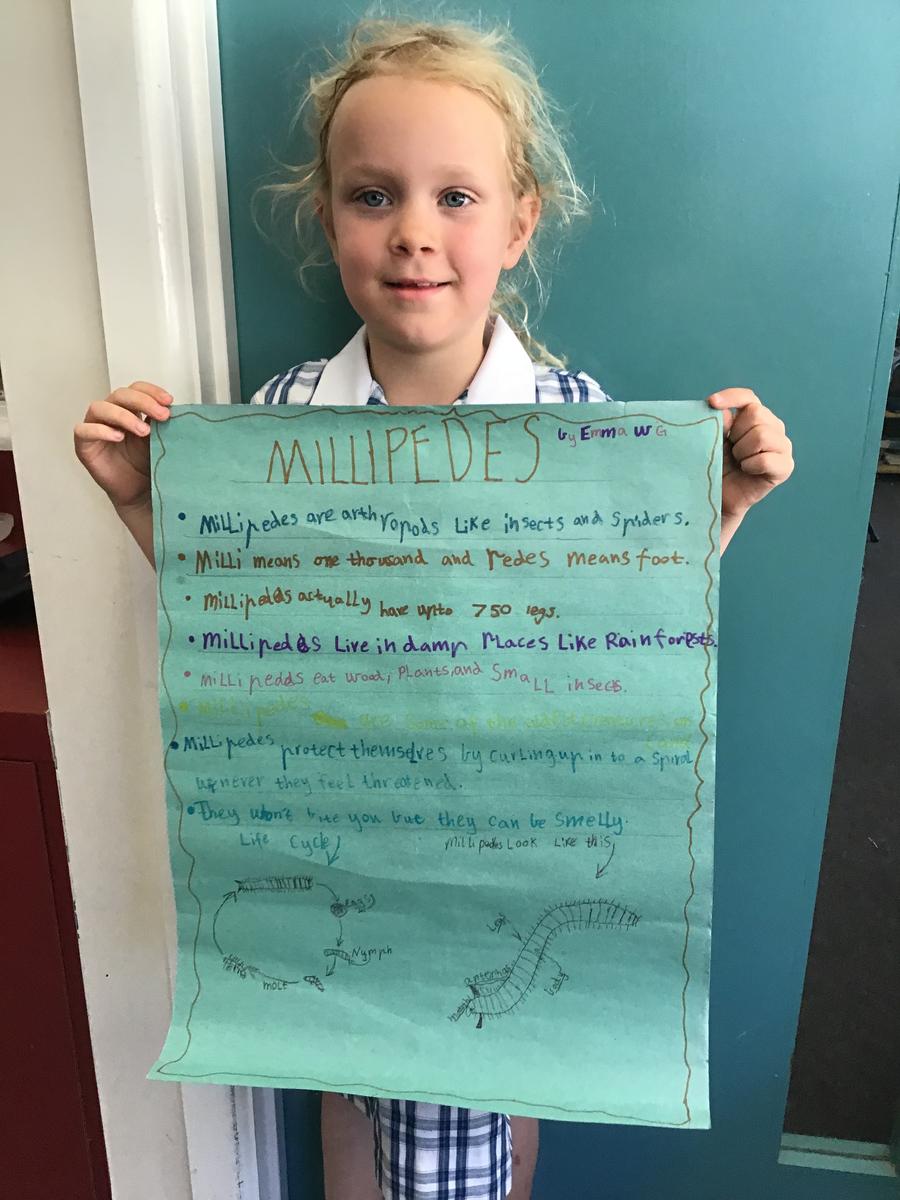 MILLIPEDES
by Emma W G
• Millipedes are arthropods Like insects and Spiders.
• Milli means one thousand and Pedes means foot.
• Millipedes actually have upto 750 legs.
• Millipedes Live in damp Places Like Rainforests.
• Millipedes eat wood, Plants, and Small insects.
• Millipedes are some of the oldest creatures on
land
• Millipedes protect themselves by curling up in to a Spiral
whenever they feel threatened.
• They won't bite you but they can be Smelly.
Life Cycle
Millipedes Look Like this
eggs
Nymph
leg
antenna
body